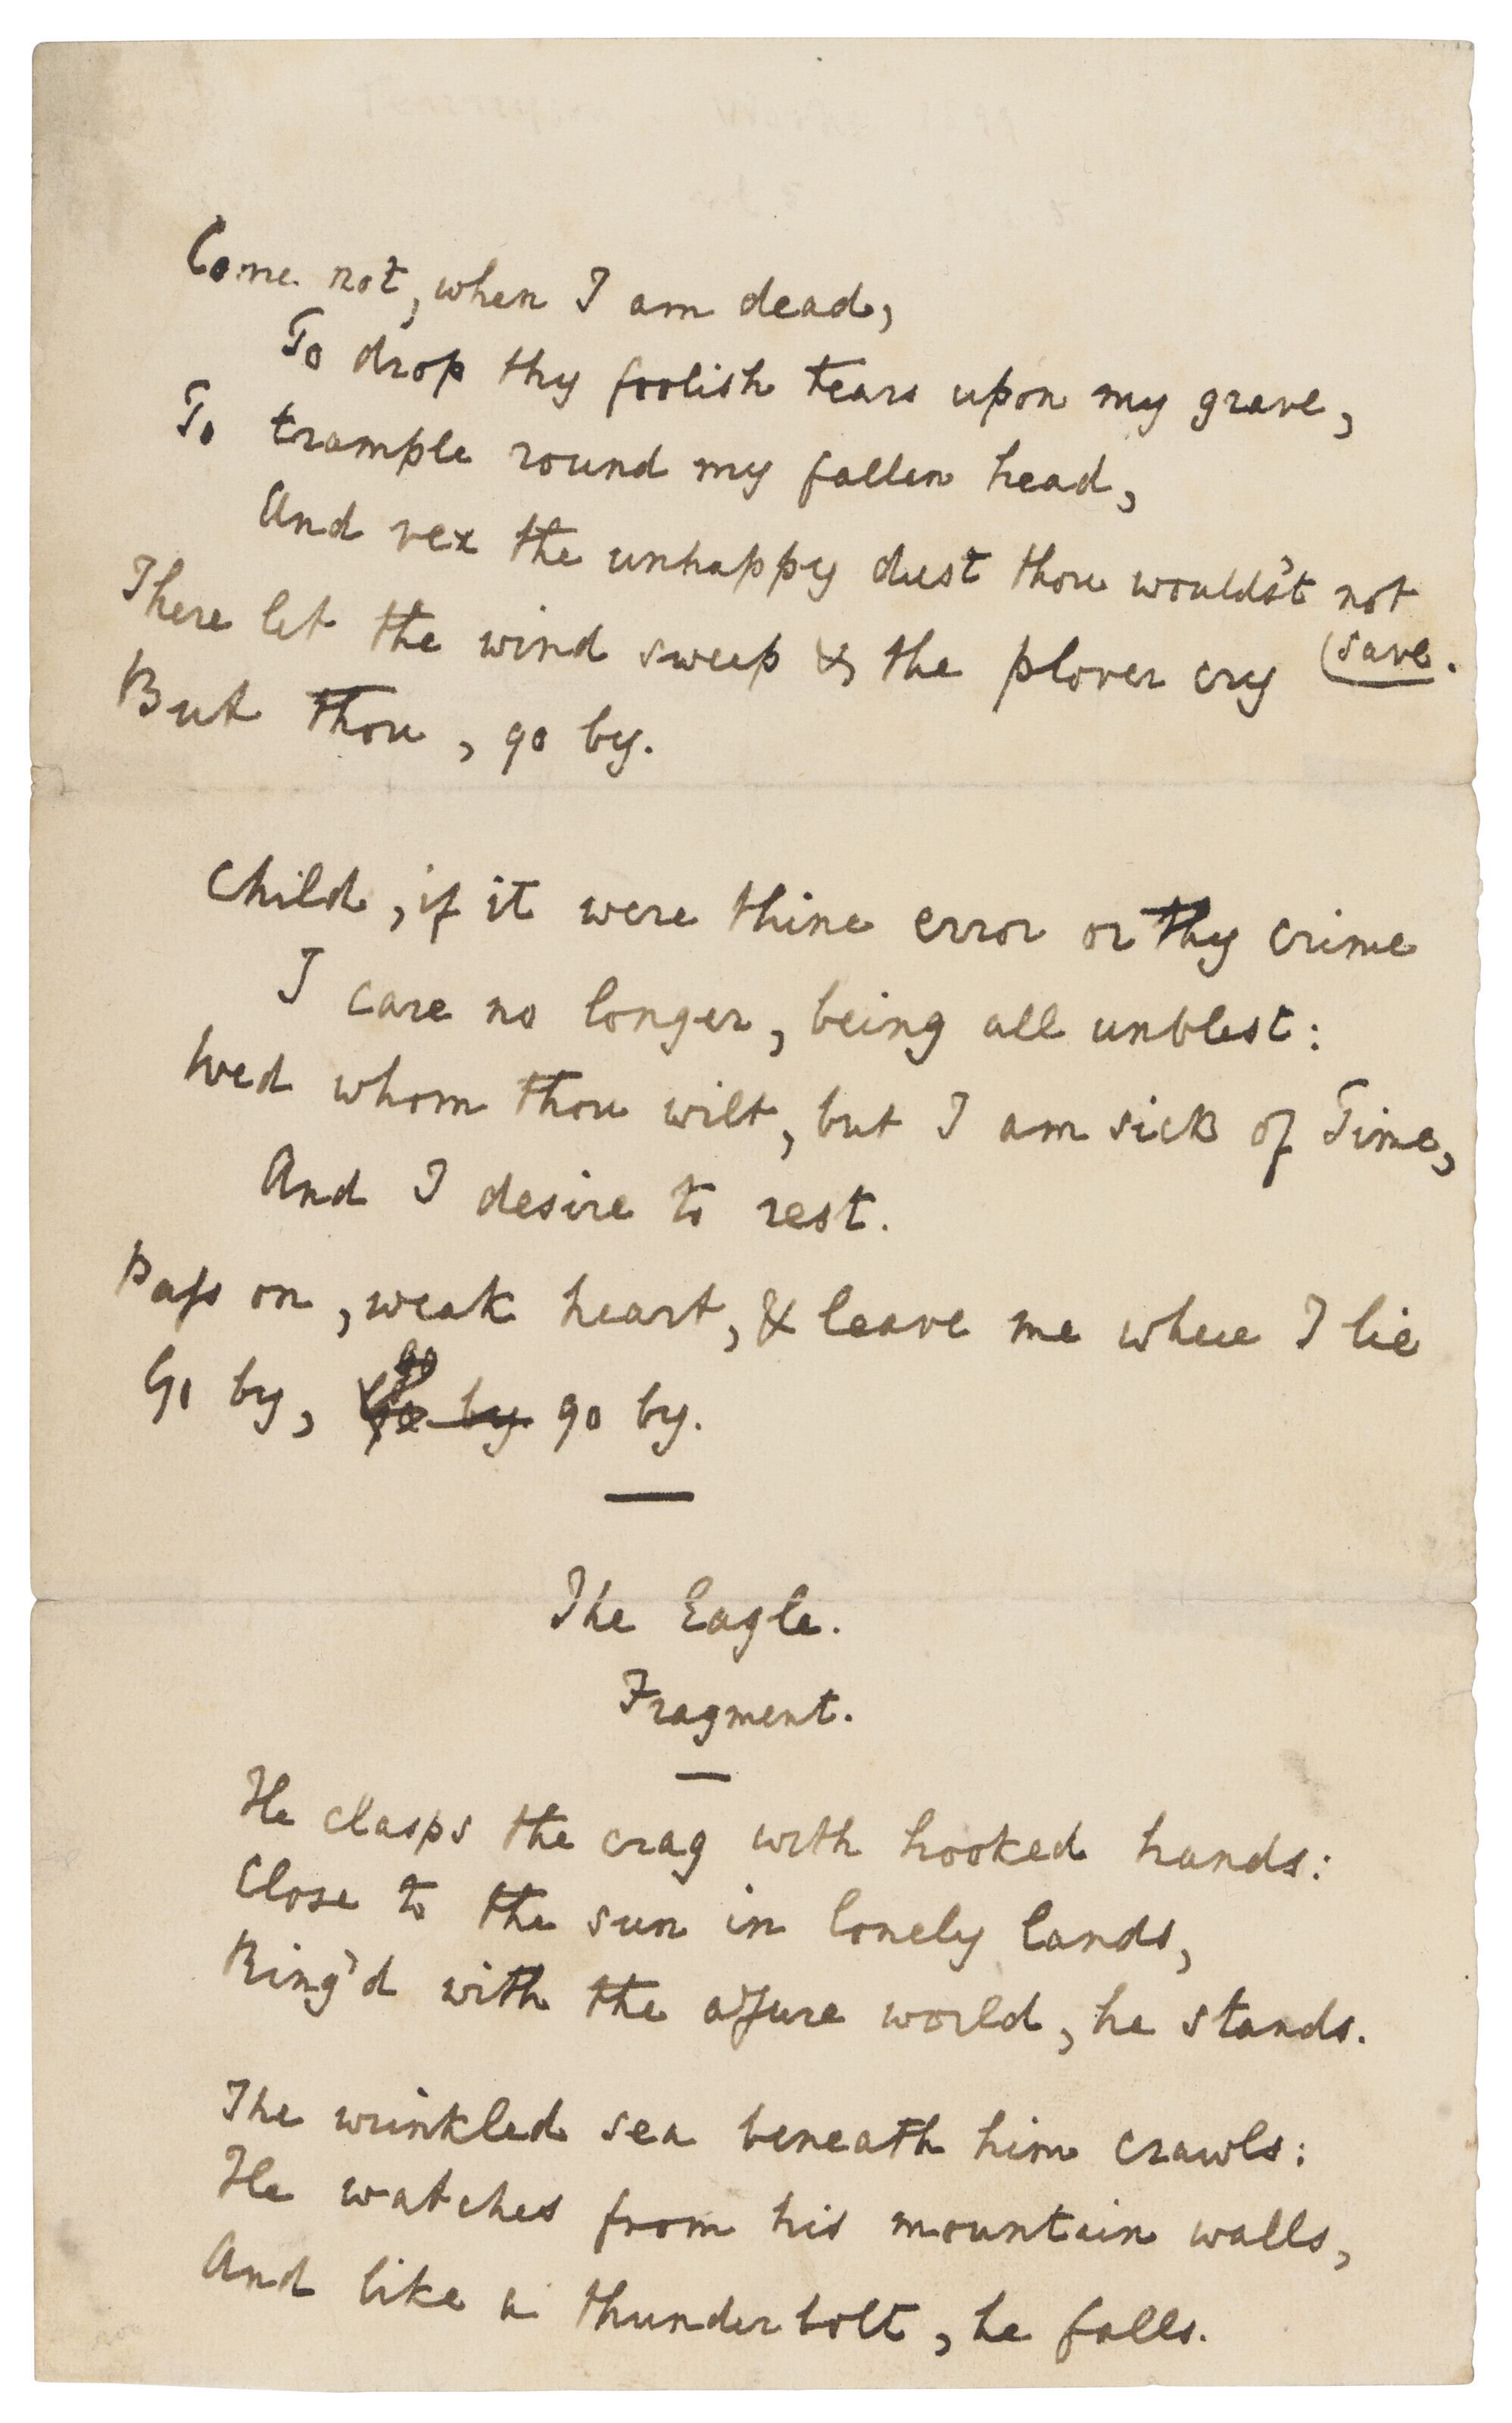 Come not, when I am dead,
To drop thy foolish tears upon my grave,
To trample round my fallen head,
And vex the unhappy dust thou would'st not
(save.
There let the wind sweep & the plover cry
But thou, go by.
Child, if it were thine error or thy crime
I care no longer, being all unblest:
Wed whom thou wilt, but I am sick of Time,
And I desire to rest.
Pass on, weak heart, & leave me where I lie
Go by, go by.
The Eagle.
Fragment.
He clasps the crag with hooked hands:
Close to the sun in lonely lands,
Ring'd with the azure world, he stands.
The wrinkled sea beneath him crawls:
He watches from his mountain walls,
And like a thunderbolt, he falls.